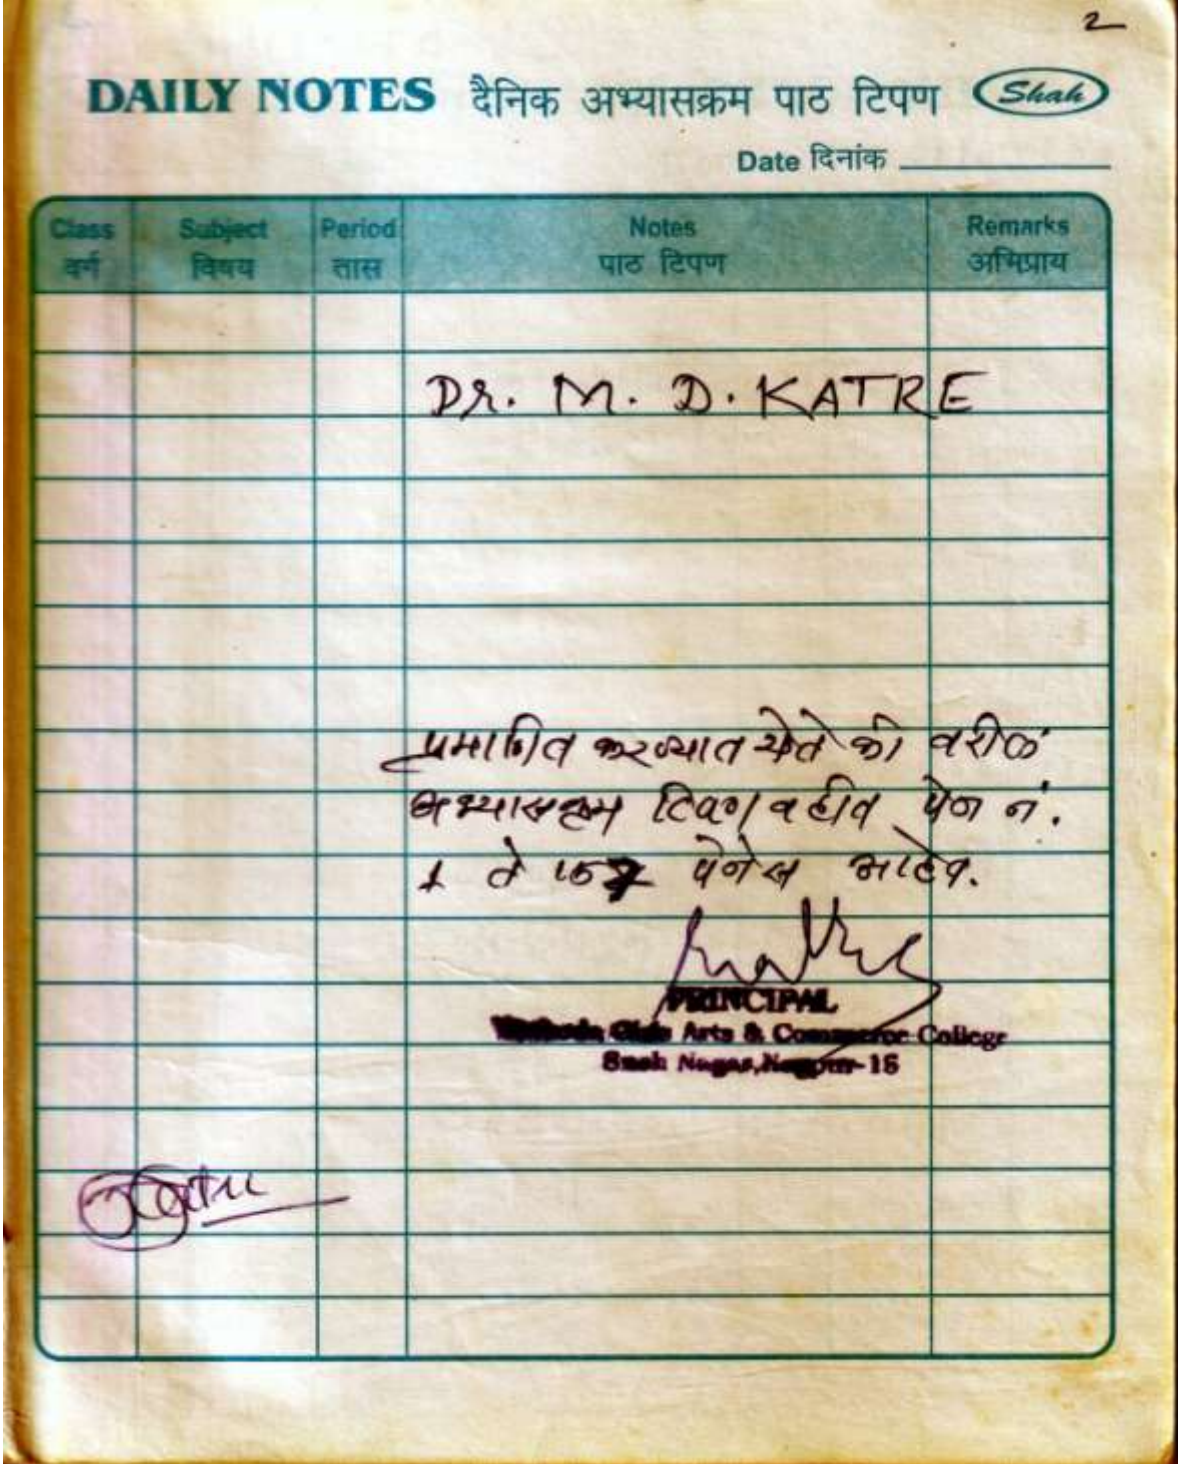 2
DAILY NOTES दैनिक अभ्यासक्रम पाठ टिपण Shah
Date दिनांक
Class Subject Period Notes Remarks
वर्ग विषय तास पाठ टिपण अभिप्राय
Dr. M. D. KATRE
प्रमाणित करण्यात येते की वरील
अभ्यासक्रम टिपण वहीत पेज नं.
1 ते 157 पेजेस आहेत.
PRINCIPAL
Arts & Commerce College
Sneh Nagar, Nagpur-15